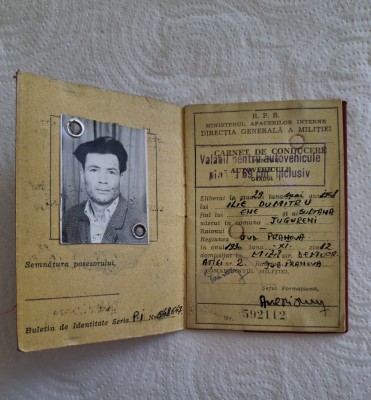 Semnătura posesorului,
Buletin de Identitate Seria P.j Nr.
R. P. R.
MINISTERUL AFACERILOR INTERNE
DIRECȚIA GENERALĂ A MILIȚIEI
CARNET DE CONDUCERE
Valabil pentru autovehicule
AUTOVEHICULE
pînă la 69 cm. inclusiv
GRADUL
Eliberat la data 29 anul
lui ILIE DUMITRU
fiul lui ENE și al SULTANA
născut în comuna JUGURENI
Raionul
Regiunea JUD PRAHOVA
în anul luna XI. ziua 12
domiciliat în MIZIL
Nr. 2. JUD PRAHOVA
COMANDANTUL MILIȚIEI,
Șeful Formațiunii,
Nr. 592112